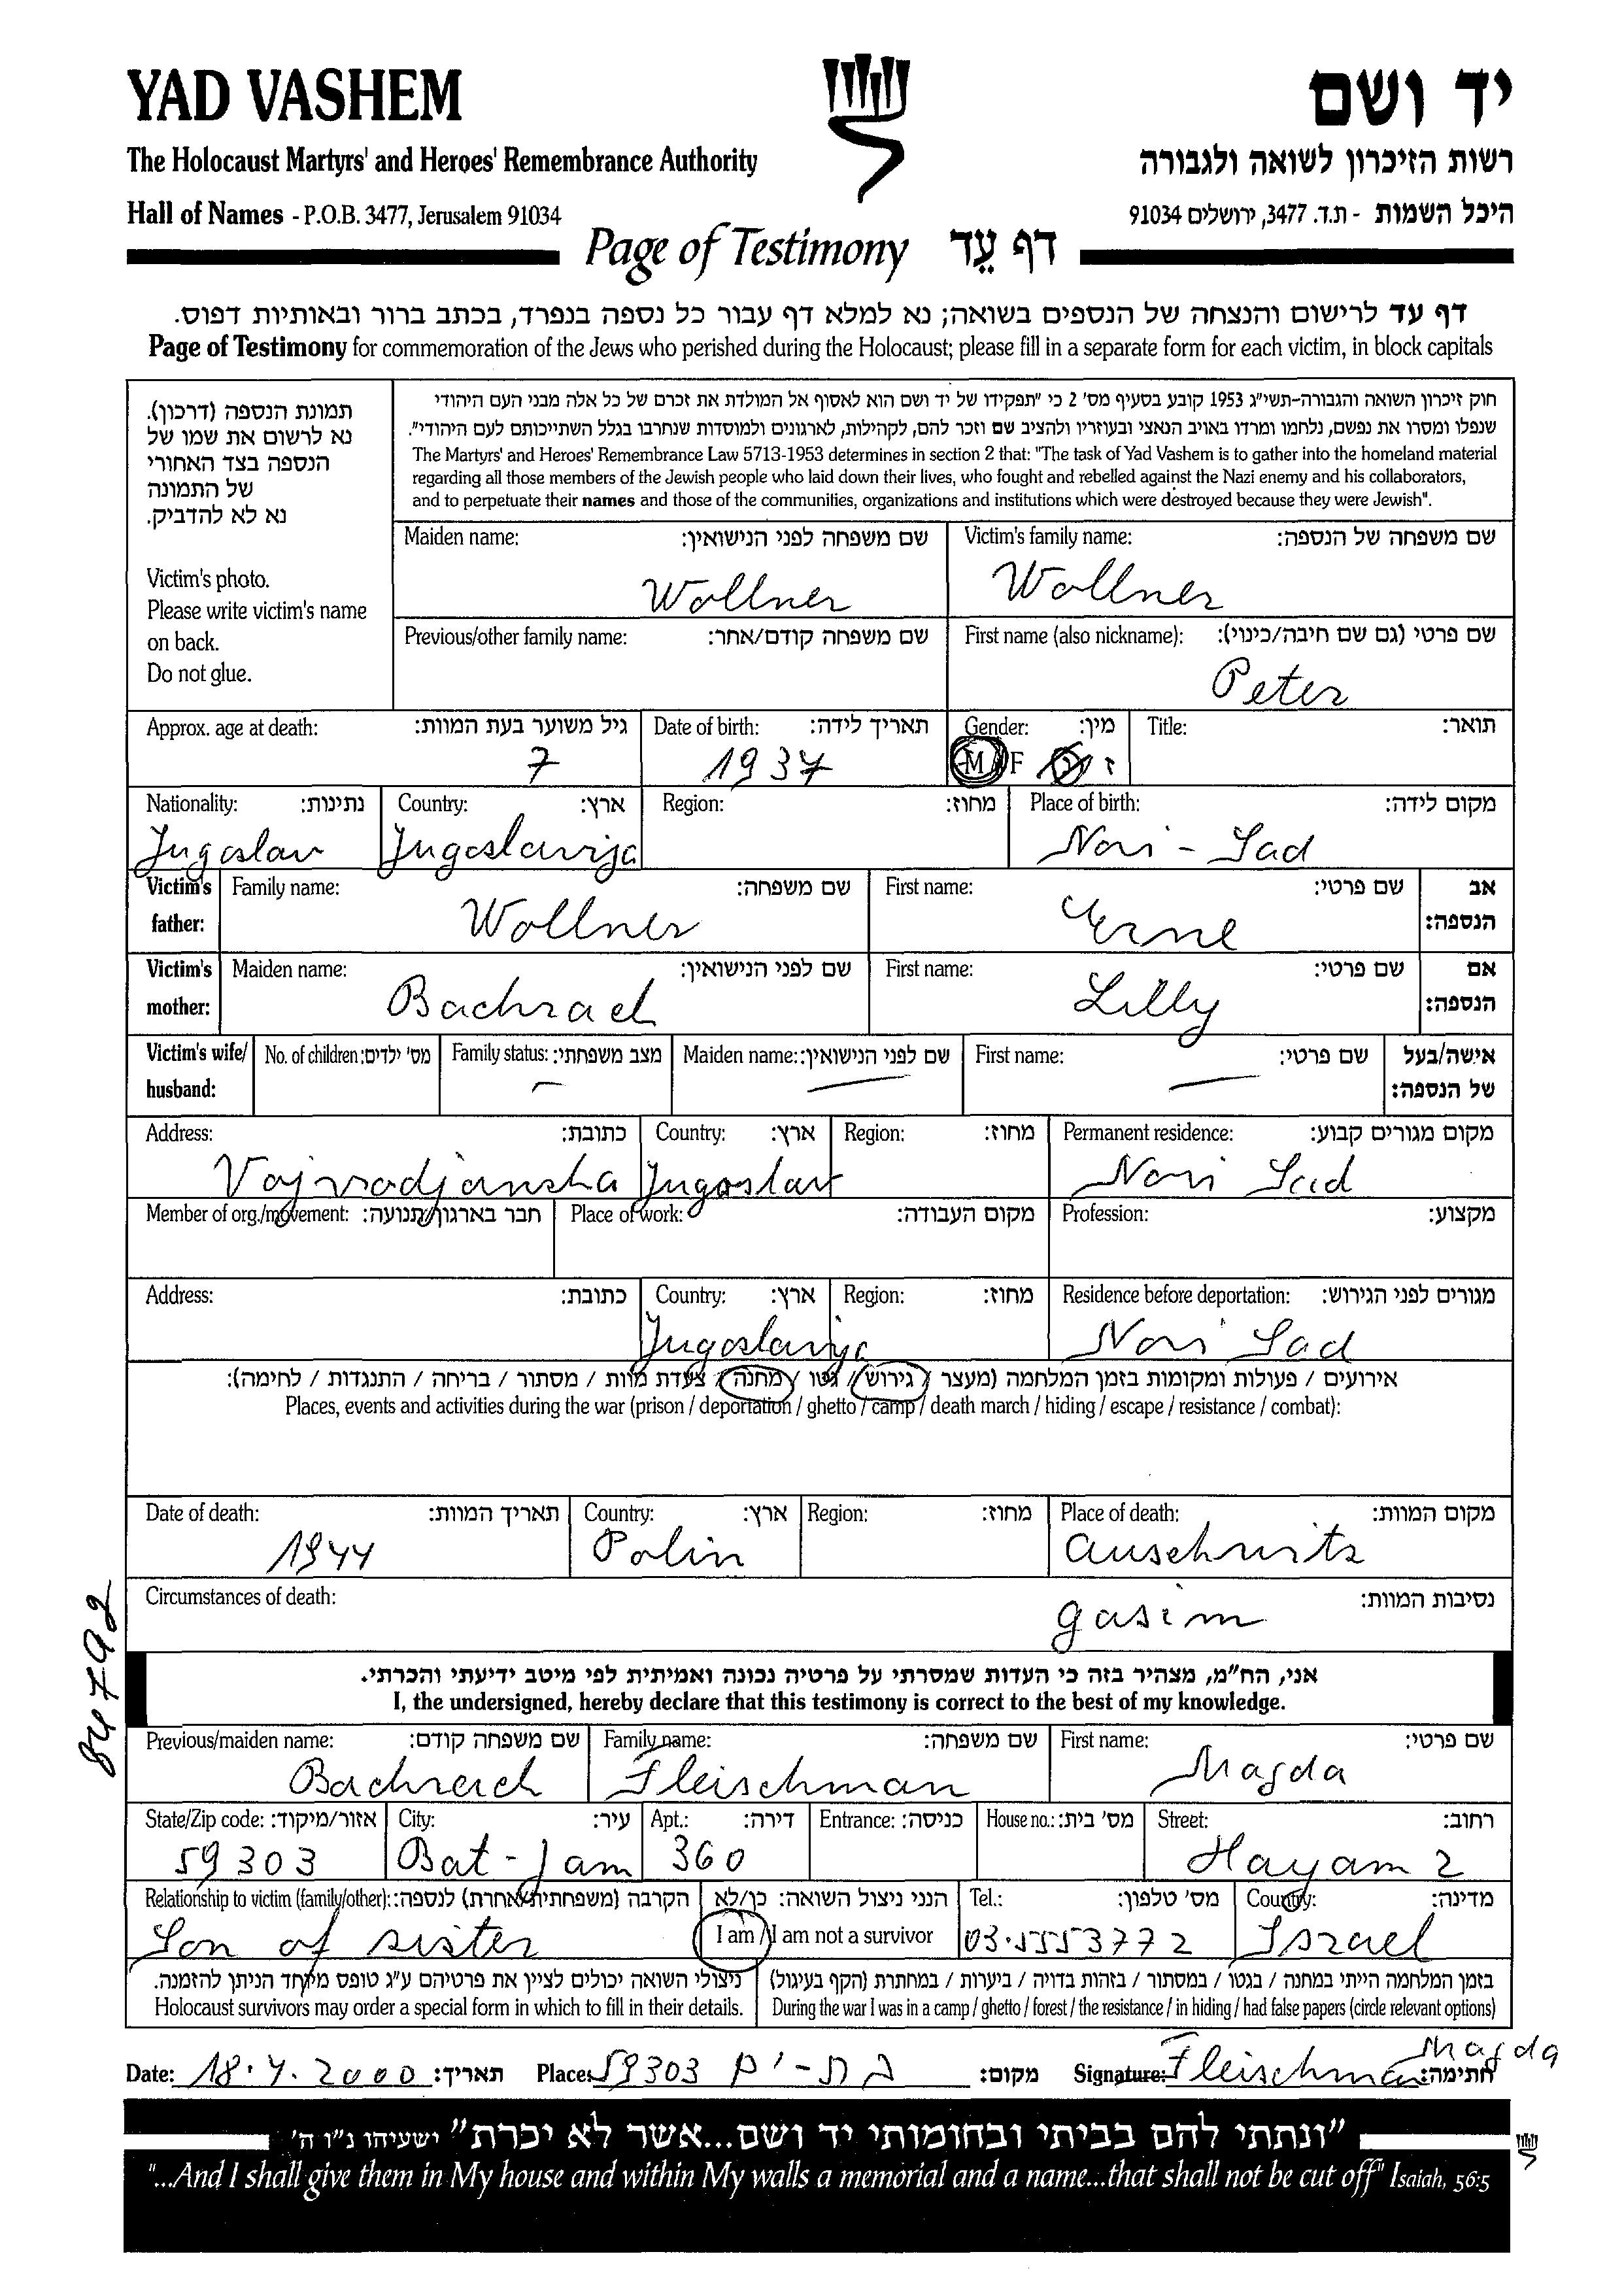 YAD VASHEM
יד ושם
The Holocaust Martyrs' and Heroes' Remembrance Authority
רשות הזיכרון לשואה ולגבורה
Hall of Names - P.O.B. 3477, Jerusalem 91034
היכל השמות - ת.ד. 3477, ירושלים 91034
Page of Testimony דף עֵד
דף עד לרישום והנצחה של הנספים בשואה; נא למלא דף עבור כל נספה בנפרד, בכתב ברור ובאותיות דפוס.
Page of Testimony for commemoration of the Jews who perished during the Holocaust; please fill in a separate form for each victim, in block capitals
תמונת הנספה (דרכון).
נא לרשום את שמו של
הנספה בצד האחורי
של התמונה
נא לא להדביק.
Victim's photo.
Please write victim's name
on back.
Do not glue.
חוק זיכרון השואה והגבורה-תשי"ג 1953 קובע בסעיף מס' 2 כי "תפקידו של יד ושם הוא לאסוף אל המולדת את זכרם של כל אלה מבני העם היהודי
שנפלו ומסרו את נפשם, נלחמו ומרדו באויב הנאצי ובעוזריו ולהציב שם וזכר להם, לקהילות, לארגונים ולמוסדות שנחרבו בגלל השתייכותם לעם היהודי".
The Martyrs' and Heroes' Remembrance Law 5713-1953 determines in section 2 that: "The task of Yad Vashem is to gather into the homeland material
regarding all those members of the Jewish people who laid down their lives, who fought and rebelled against the Nazi enemy and his collaborators,
and to perpetuate their names and those of the communities, organizations and institutions which were destroyed because they were Jewish".
Maiden name: שם משפחה לפני הנישואין:
Wollner
Victim's family name: שם משפחה של הנספה:
Wollner
Previous/other family name: שם משפחה קודם/אחר:
First name (also nickname): שם פרטי (גם שם חיבה/כינוי):
Peter
Approx. age at death: גיל משוער בעת המוות:
7
Date of birth: תאריך לידה:
1937
Gender: מין:
M / F ז / נ
Title: תואר:
Nationality: נתינות:
Jugoslav
Country: ארץ:
Jugoslavija
Region: מחוז:
Place of birth: מקום לידה:
Novi - Sad
Victim's father:
Family name: שם משפחה:
Wollner
First name: שם פרטי:
Erne
אב הנספה:
Victim's mother:
Maiden name: שם לפני הנישואין:
Bachrach
First name: שם פרטי:
Lilly
אם הנספה:
Victim's wife/ husband:
No. of children: מס' ילדים:
Family status: מצב משפחתי:
Maiden name: שם לפני הנישואין:
First name: שם פרטי:
אישה/בעל של הנספה:
Address: כתובת:
Country: ארץ:
Jugoslav
Region: מחוז:
Permanent residence: מקום מגורים קבוע:
Novi Sad
Member of org./movement: חבר בארגון/תנועה:
Place of work: מקום העבודה:
Profession: מקצוע:
Address: כתובת:
Country: ארץ:
Jugoslavija
Region: מחוז:
Residence before deportation: מגורים לפני הגירוש:
Novi Sad
אירועים / פעולות ומקומות בזמן המלחמה (מעצר / גירוש / גטו / מחנה / צעדת מוות / מסתור / בריחה / התנגדות / לחימה):
Places, events and activities during the war (prison / deportation / ghetto / camp / death march / hiding / escape / resistance / combat):
Date of death: תאריך המוות:
1944
Country: ארץ:
Polin
Region: מחוז:
Place of death: מקום המוות:
Auschwitz
Circumstances of death: נסיבות המוות:
gasim
84792
אני, הח"מ, מצהיר בזה כי העדות שמסרתי על פרטיה נכונה ואמיתית לפי מיטב ידיעתי והכרתי.
I, the undersigned, hereby declare that this testimony is correct to the best of my knowledge.
Previous/maiden name: שם משפחה קודם:
Bachrach
Family name: שם משפחה:
Fleischman
First name: שם פרטי:
Magda
State/Zip code: אזור/מיקוד:
59303
City: עיר:
Bat - Jam
Apt.: דירה:
360
Entrance: כניסה:
House no.: מס' בית:
Street: רחוב:
Hayam 2
Relationship to victim (family/other): הקרבה (משפחתית/אחרת) לנספה:
Son of sister
הנני ניצול השואה: כן/לא
I am / I am not a survivor
Tel.: מס' טלפון:
03.5553772
Country: מדינה:
Israel
ניצולי השואה יכולים לציין את פרטיהם ע"ג טופס מיוחד הניתן להזמנה.
Holocaust survivors may order a special form in which to fill in their details.
בזמן המלחמה הייתי במחנה / בגטו / במסתור / בזהות בדויה / ביערות / במחתרת (הקף בעיגול)
During the war I was in a camp / ghetto / forest / the resistance / in hiding / had false papers (circle relevant options)
Date: 18.4.2000 תאריך:
Place: 59303 בת-ים מקום:
Signature: Fleischman Magda חתימה:
"ונתתי להם בביתי ובחומותי יד ושם...אשר לא יכרת" ישעיהו נ"ו ה'
"...And I shall give them in My house and within My walls a memorial and a name...that shall not be cut off" Isaiah, 56:5